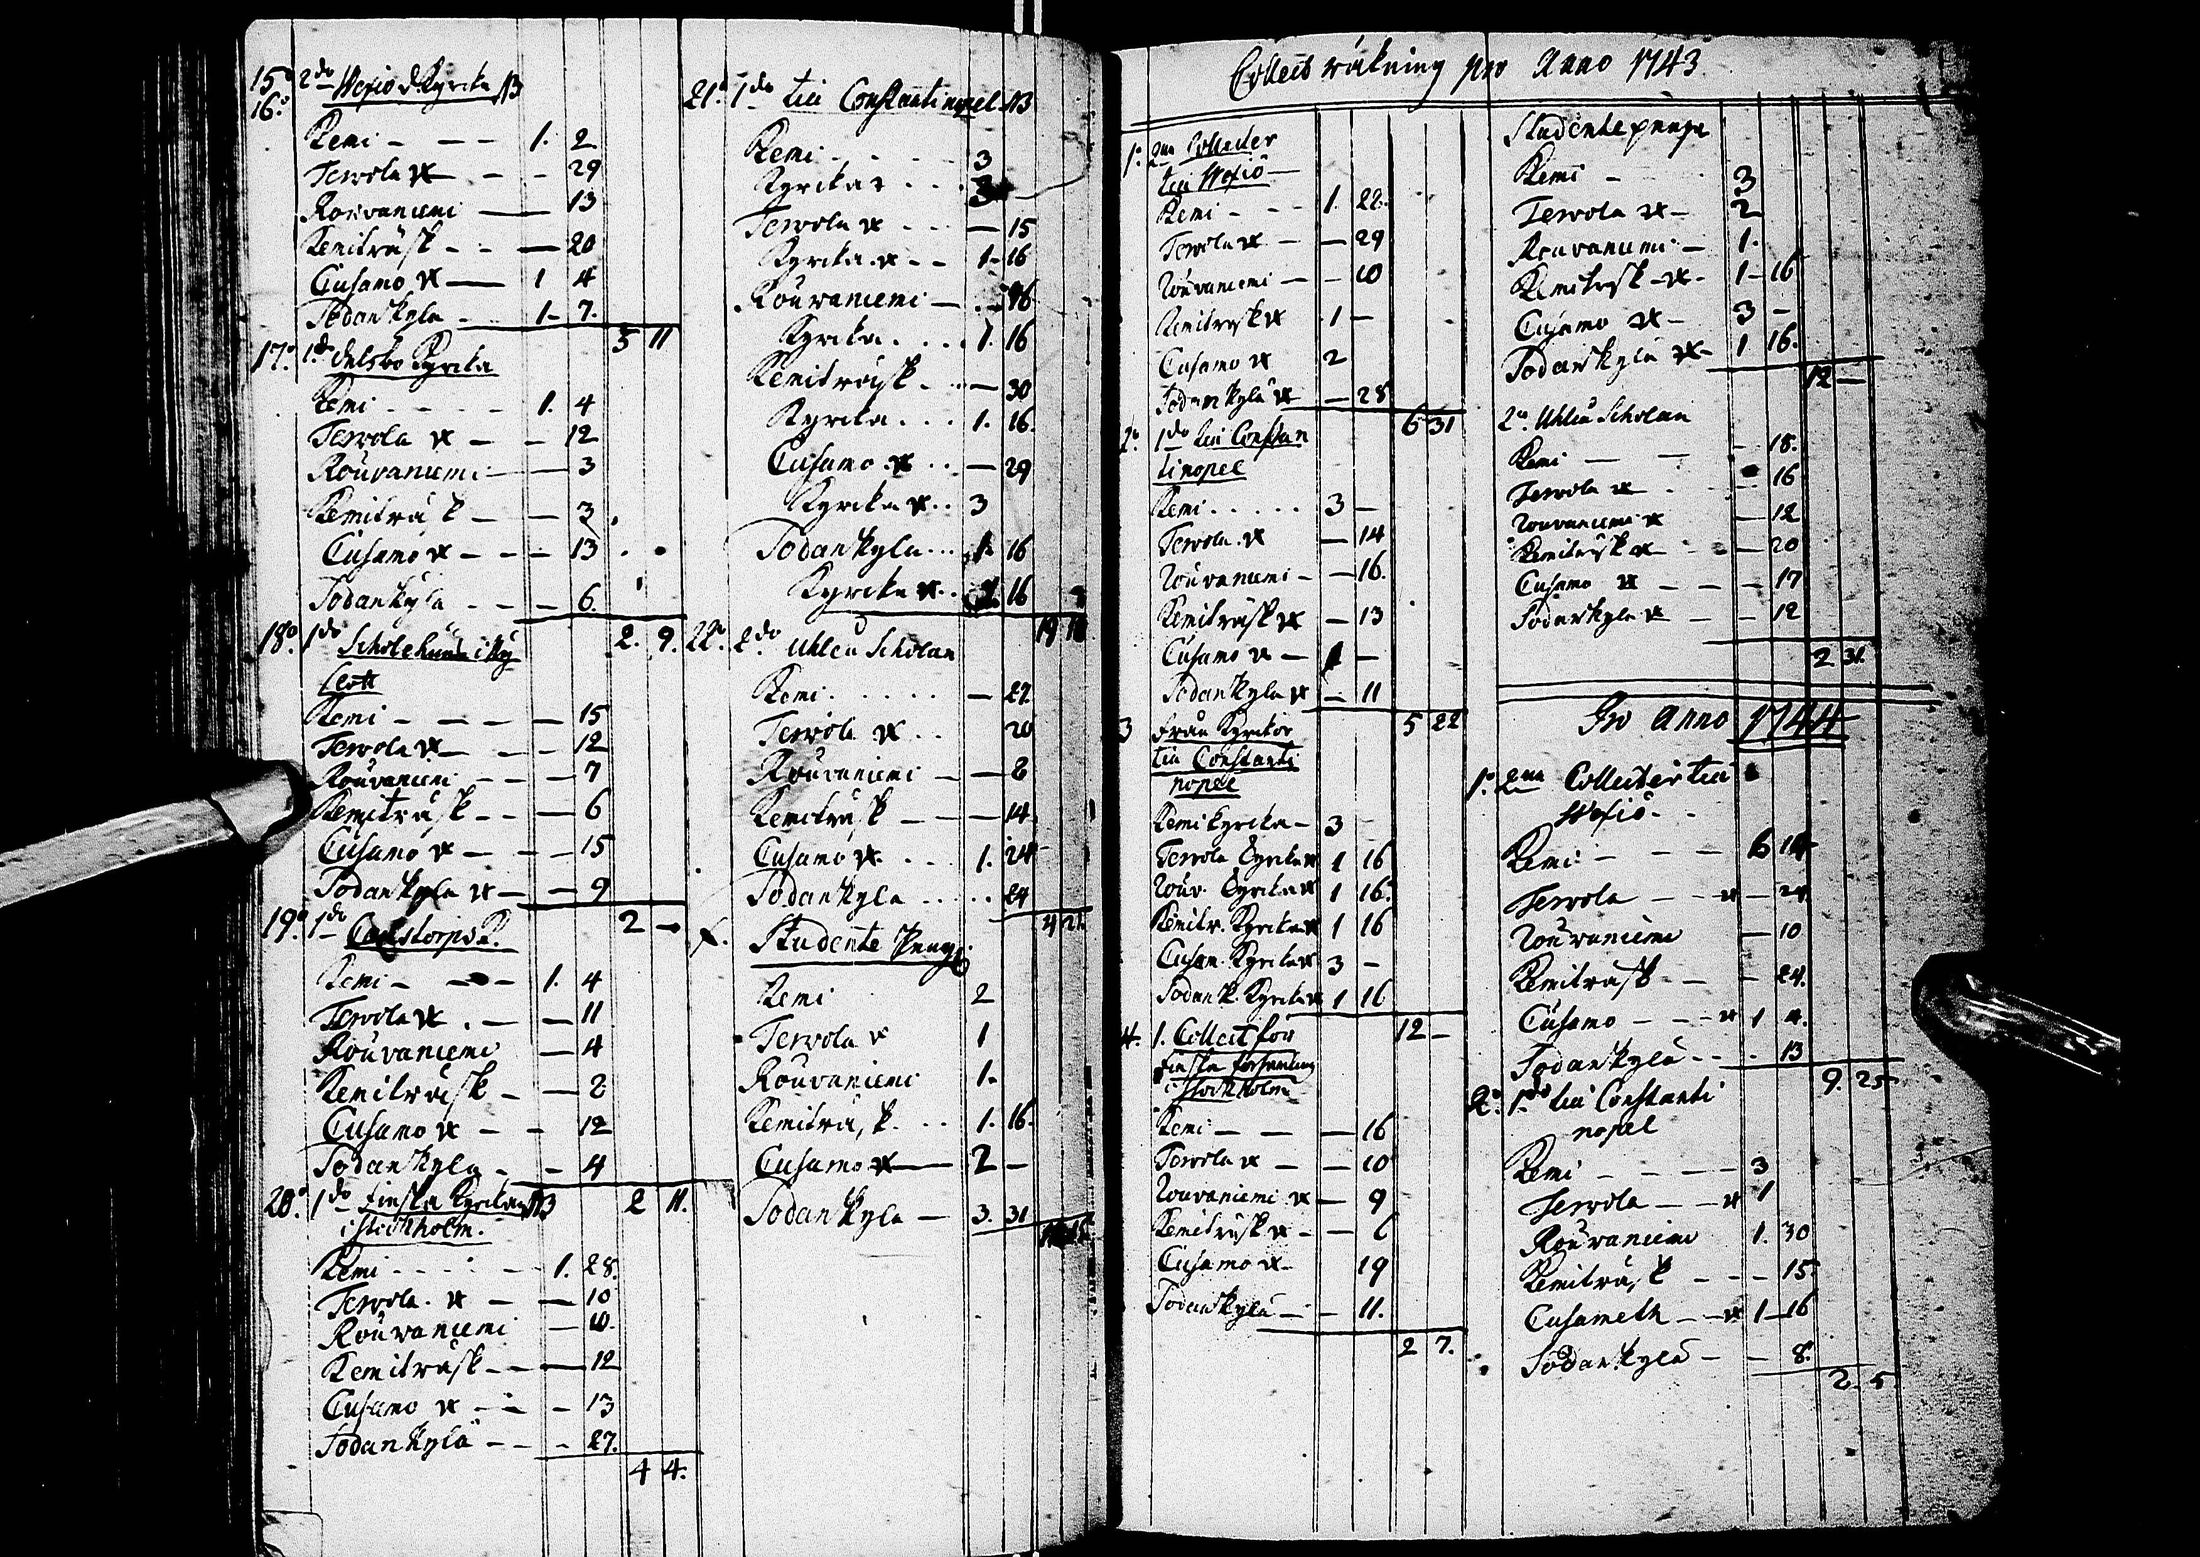 15.o 2do Wexiö Kyrcka NB
16.o
Kemi - - - 1. 2
Terwola - - 29
Rouvaniemi — 13
Kemiträsk - - — 20
Cusamo — 1 4
Sodankyla - 1- 7.
5 11
17.o 1do delsbo Kyrcka
Kemi - - - - 1. 4
Terwola - - 12
Rouvaniemi — 3
Kemiträsk — — 3.
Cusamo - - - 13
Sodankyla - - — 6.
2. 9.
18.o 1do
Kemi - - - — 15
Terwola — - - 12
Rouvaniemi - - — 7
Kemiträsk - - — 6
Cusamo — - - 15
Sodankyla — — 9
2 —
19.o 1do Carlstorps K.
Kemi - - - 1. 4
Terwola . — — 11
Rouvaniemi — 4
Kemiträsk - — 2
Cusamo - - 12
Sodankyla - - 4
2 11.
20.o 1do finska Kyrckan NB
i Stockholm.
Kemi - - - - 1. 28.
Terwola . — — 10
Rouvaniemi — 10.
Kemiträsk - - — 12
Cusamo - - - 13
Sodankylä - - - 27.
4 4.
21.o 1do till Constantinopel NB
Kemi - - - - 3
Kyrcka . . . 3
Terwola . . . — 15
Kyrcka - - 1- 16
Rouvaniemi — 16
Kyrcka . . . . 1. 16
Kemiträsk . . — 30
Kyrcka . . . 1. 16.
Cusamo . . — 29
Kyrcka . . 3
Sodankyla . . . 1. 16
Kyrcka . . 1 16
19 18
22.o 2do Uhleå Scholan
Kemi . . . . . — 27
Terwola . . 20
Rouvaniemi — — 8
Kemiträsk — — — 14
Cusamo . . . 1. 24
Sodankyla . . . . . 24
4 21.
Studente Penge
Kemi 2
Terwola 1
Rouvaniemi 1.
Kemiträsk . . . 1. 16.
Cusamo — 2 —
Sodankyla — 3. 31
Collect räkning pro Anno 1743
1.o 2ne Collecter
till Wexiö —
Kemi - - - 1. 22.
Terwola - — 29
Rouvaniemi - - 10
Kemitresk 1 —
Cusamo 2
Sodankyla — 28
6 31
2.o 1do till Constan
tinopel
Kemi . . . . . 3 —
Terwola — 14
Rouvaniemi - — 16.
Kemiträsk — 13
Cusamo — 1 —
Sodankyla — 11
5 22
3 från Kyrckor
till Constanti
nopel
Kemi Kyrcka - 3
Terwola Kyrcka 1 16
Rouv. Kyrcka 1 16.
Kemitr. Kyrcka 1 16
Cusam. Kyrcka 3 -
Sodank. Kyrcka 1 16
12 —
4. 1. Collect för
finska församling
i Stockholm
Kemi — — — 16
Terwola — — 10
Rouvaniemi — 9
Kemiträsk - — 6
Cusamo - 19
Sodankylä - - 11.
2 7.
Studente penge
Kemi - 3
Terwola - 2
Rouvaniemi - 1.
Kemitresk - 1- 16
Cusamo - 3 -
Sodankylä - 1 16.
12 —
2.o Uhleå Scholan
Kemi — — — 18.
Terwola - 16
Rouvaniemi — 12
Kemiträsk - — 20
Cusamo — - - 17
Sodankyla — - 12
2 31.
Pro Anno 1744
1.o 2ne Collecter till
Wexiö . .
Kemi - — — 6 14
Terwola — — 24
Rouvaniemi — 10
Kemiträsk — — 24.
Cusamo — — 1 4.
Sodankylä - - - 13
9. 25
2.o 1do till Constanti
nopel
Kemi - - — — 3
Terwola — — 1
Rouvaniemi 1. 30
Kemiträsk - - - 15
Cusamo — 1 16
Sodankylä - - 8.
2. 5.